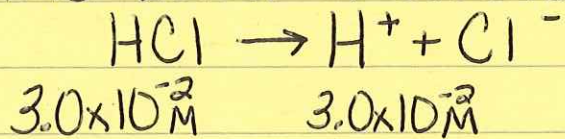 HCl → H⁺ + Cl⁻
3.0x10⁻²M 3.0x10⁻²M